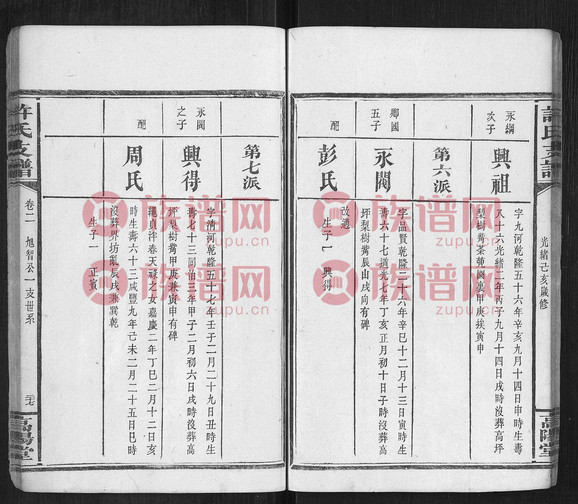 許氏支譜
光緒己亥歲修
高陽堂
永綱
次子
興祖
字九河乾隆五十六年辛亥九月十四日申時生壽
八十六光緒二年丙子九月十四日戌時沒葬高坪
第六派
鄉國
五子
永閥
字品賢乾隆二十六年辛巳十二月十三日寅時生
壽六十七道光七年丁亥正月初十日子時沒葬高
坪梨樹灣辰山戌向有碑
配
彭氏
改適
生子一 興得
第七派
永閥
之子
興得
字清河乾隆五十七年壬子二月二十九日丑時生
壽七十三同治三年甲子二月初六日戌時沒葬高
坪梨樹灣甲庚兼寅申有碑
配
周氏
龍貞洋春天祿之女嘉慶二年丁巳月十二日亥
時生壽六十三咸豐九年己未二月二十五日巳時
生子一 正賓
許氏支譜
卷二 旭智公一支世系
高陽堂
族谱网
zupu.cn
族谱网
zupu.cn
族谱网
zupu.cn
族谱网
zupu.cn